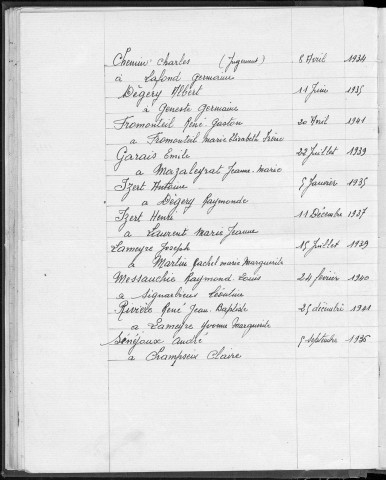 Chemin Charles (Jugement) 8 Avril 1934
à Lafond Germaine
Dégery Albert 11 Juin 1935
à Geneste Germaine
Fromonteil René Gaston 20 Avril 1941
à Fromonteil Marie Elisabeth Irène
Garais Emile 22 Juillet 1939
à Mazaleyrat Jeanne Marie
Izert Antoine 5 Janvier 1935
à Dégery Raymonde
Izert Henri 11 Décembre 1937
à Laurent Marie Jeanne
Lameyre Joseph 15 Juillet 1939
à Martin Rachel Marie Marguerite
Messauchie Raymond Louis 24 février 1940
à Signarbieux Léontine
Rivière René Jean Baptiste 25 décembre 1941
à Lameyre Yvonne Marguerite
Sénéjoux André 5 septembre 1936
à Champseix Claire